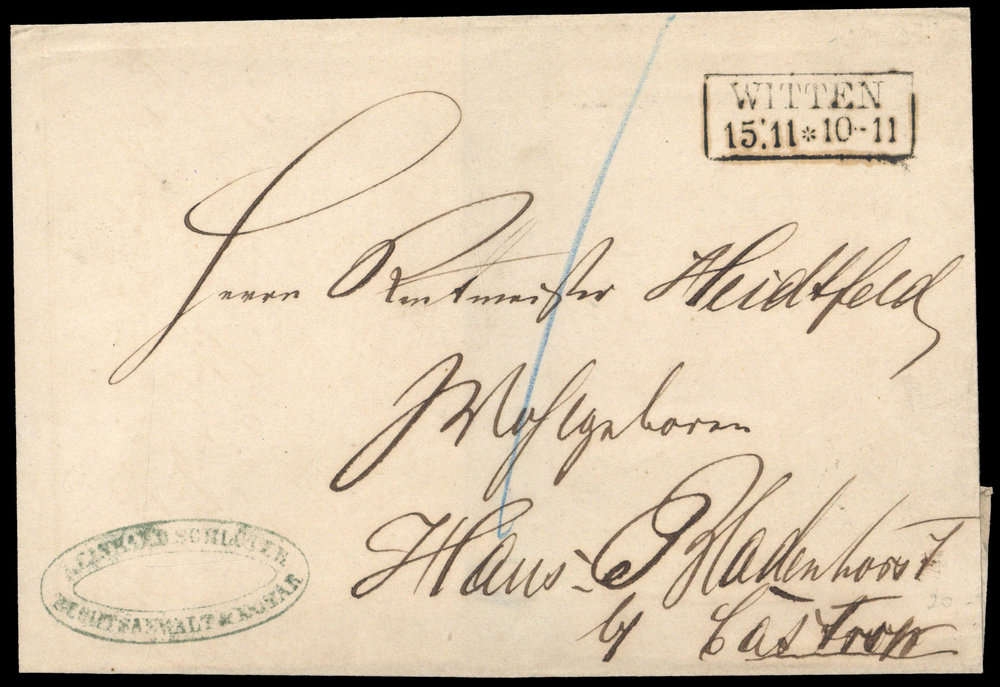 WITTEN
15.11*10-11
Herrn Rentmeister Heidtfeld
Wohlgeboren
Haus Bladenhorst
b/ Castrop
REINHARD SCHLÜTER
RECHTSANWALT & NOTAR
20